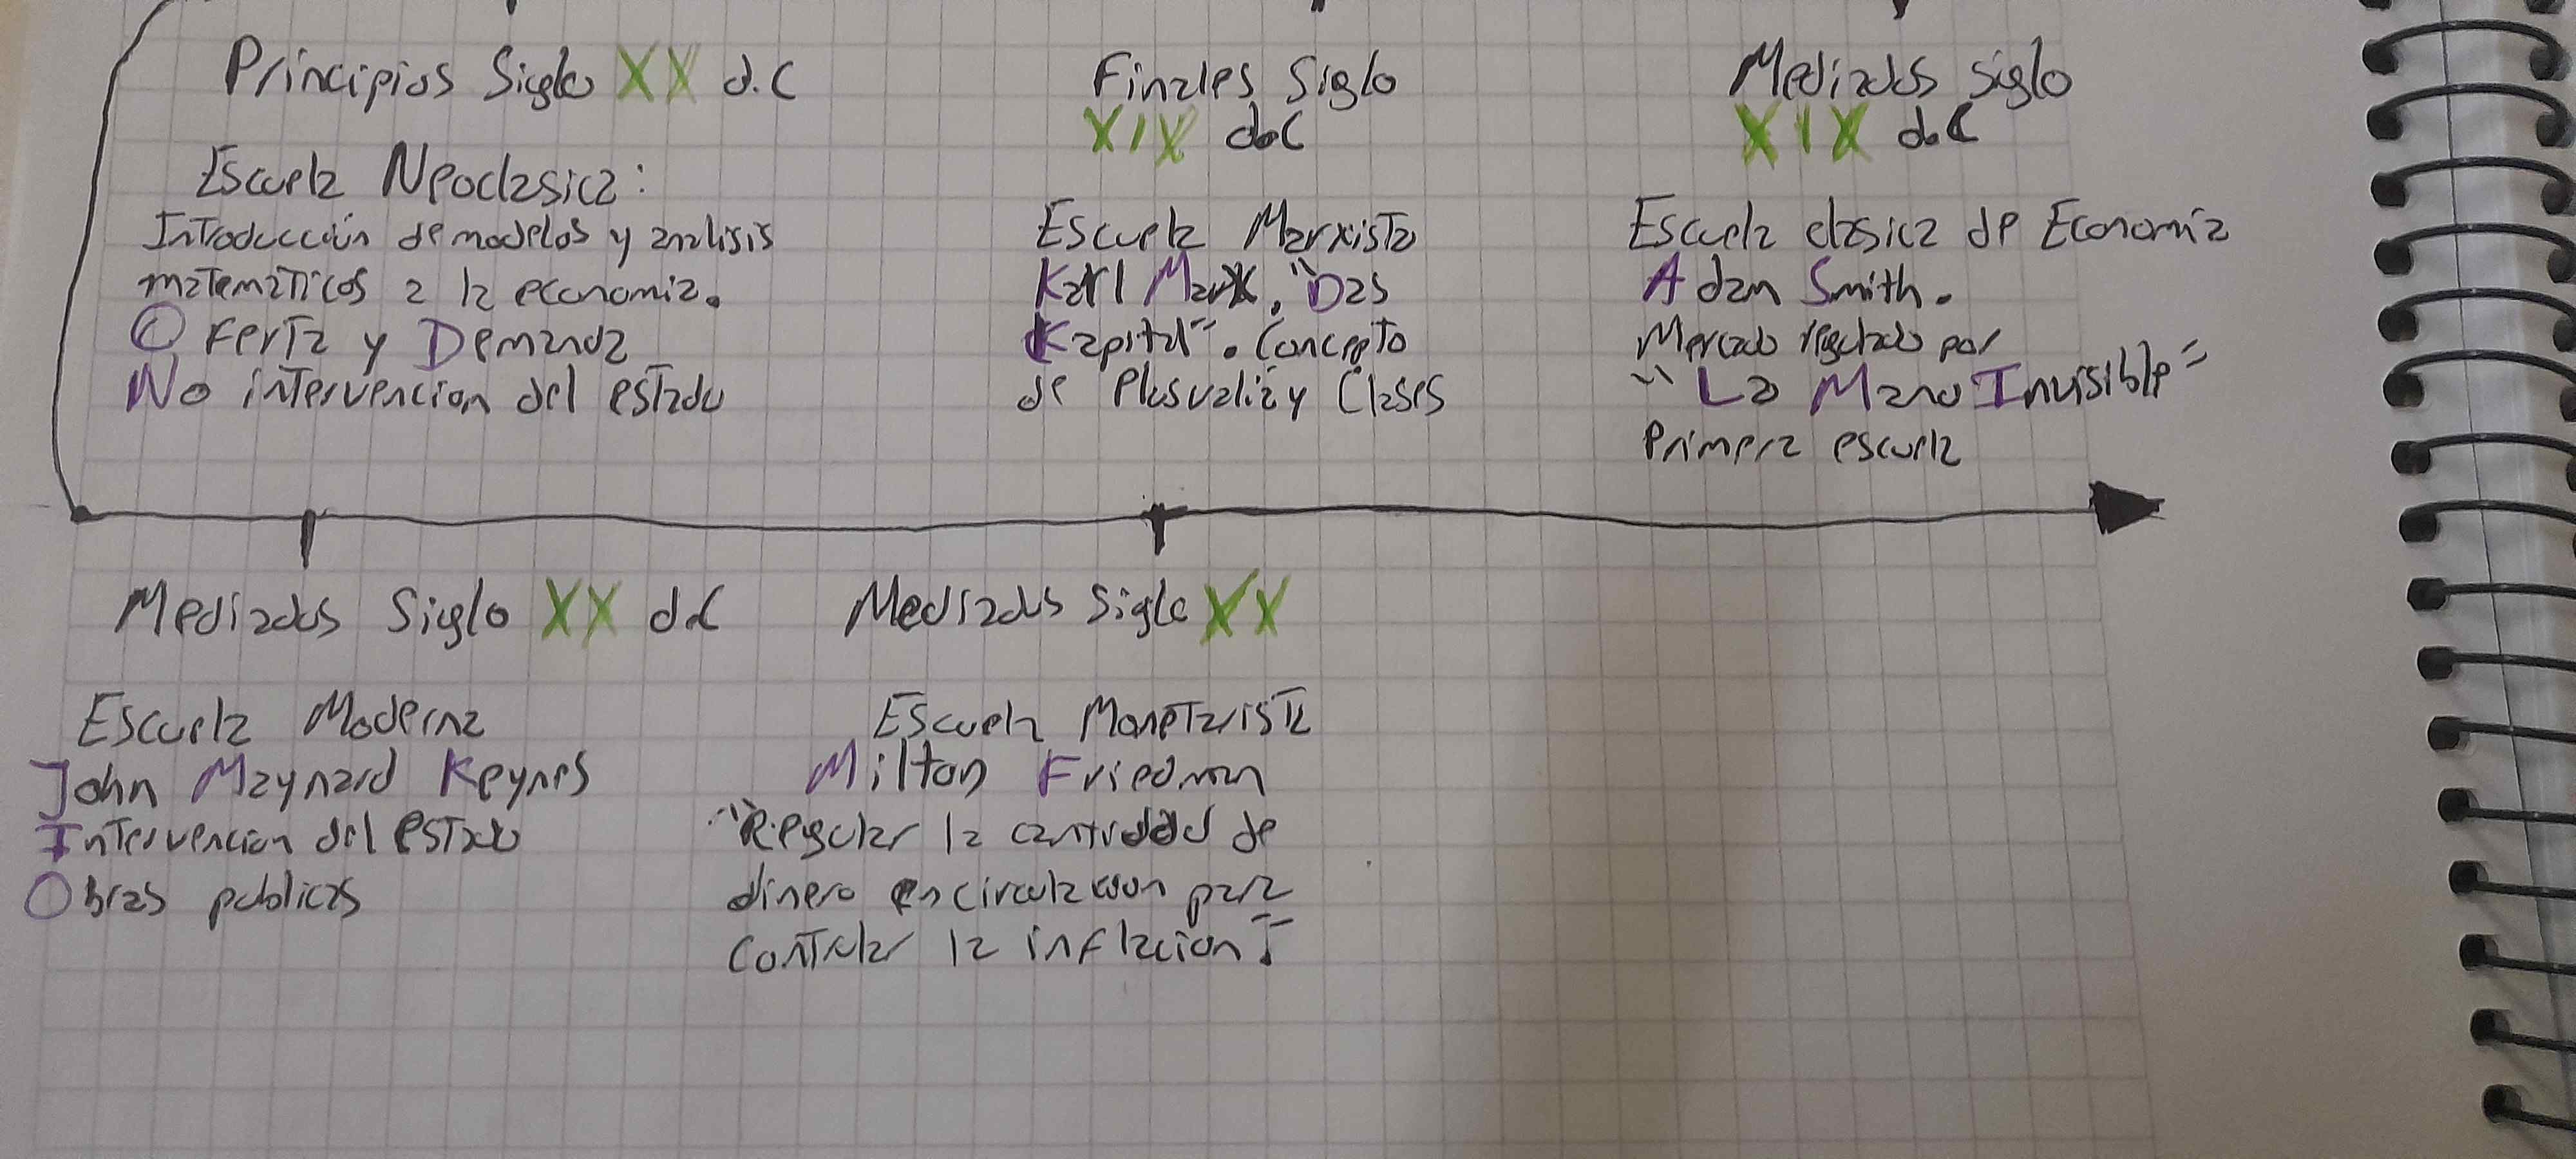 Principios Siglo XX d.C
Escuela Neoclasica:
Introducción de modelos y analisis
matemáticos a la economia.
Oferta y Demanda
No intervencion del estado
Finales Siglo
XIX d.C
Escuela Marxista
Karl Marx. "Das
Kapital". Concepto
de Plusvalía y Clases
Mediados siglo
XIX d.C
Escuela clasica de Economía
Adan Smith.
Mercado regulado por
"La Mano Invisible"
Primera escuela
Mediados Siglo XX d.C
Escuela Moderna
John Maynard Keynes
Intervencion del estado
Obras publicas
Mediados Siglo XX
Escuela Monetarista
Milton Friedman
"Regular la cantidad de
dinero en circulacion para
Controlar la inflacion".